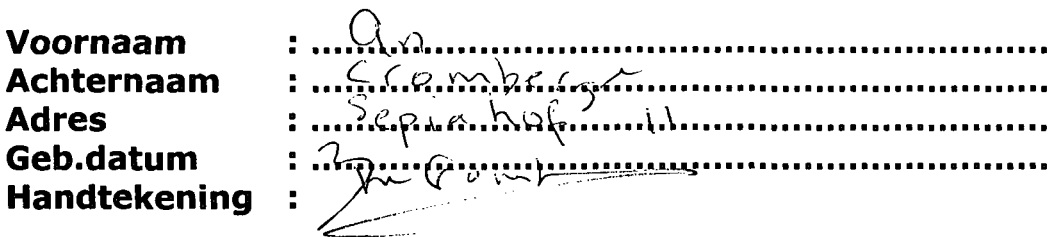 Voornaam : An
Achternaam : Cromberge
Adres : Sepiahof 11
Geb.datum :
Handtekening :